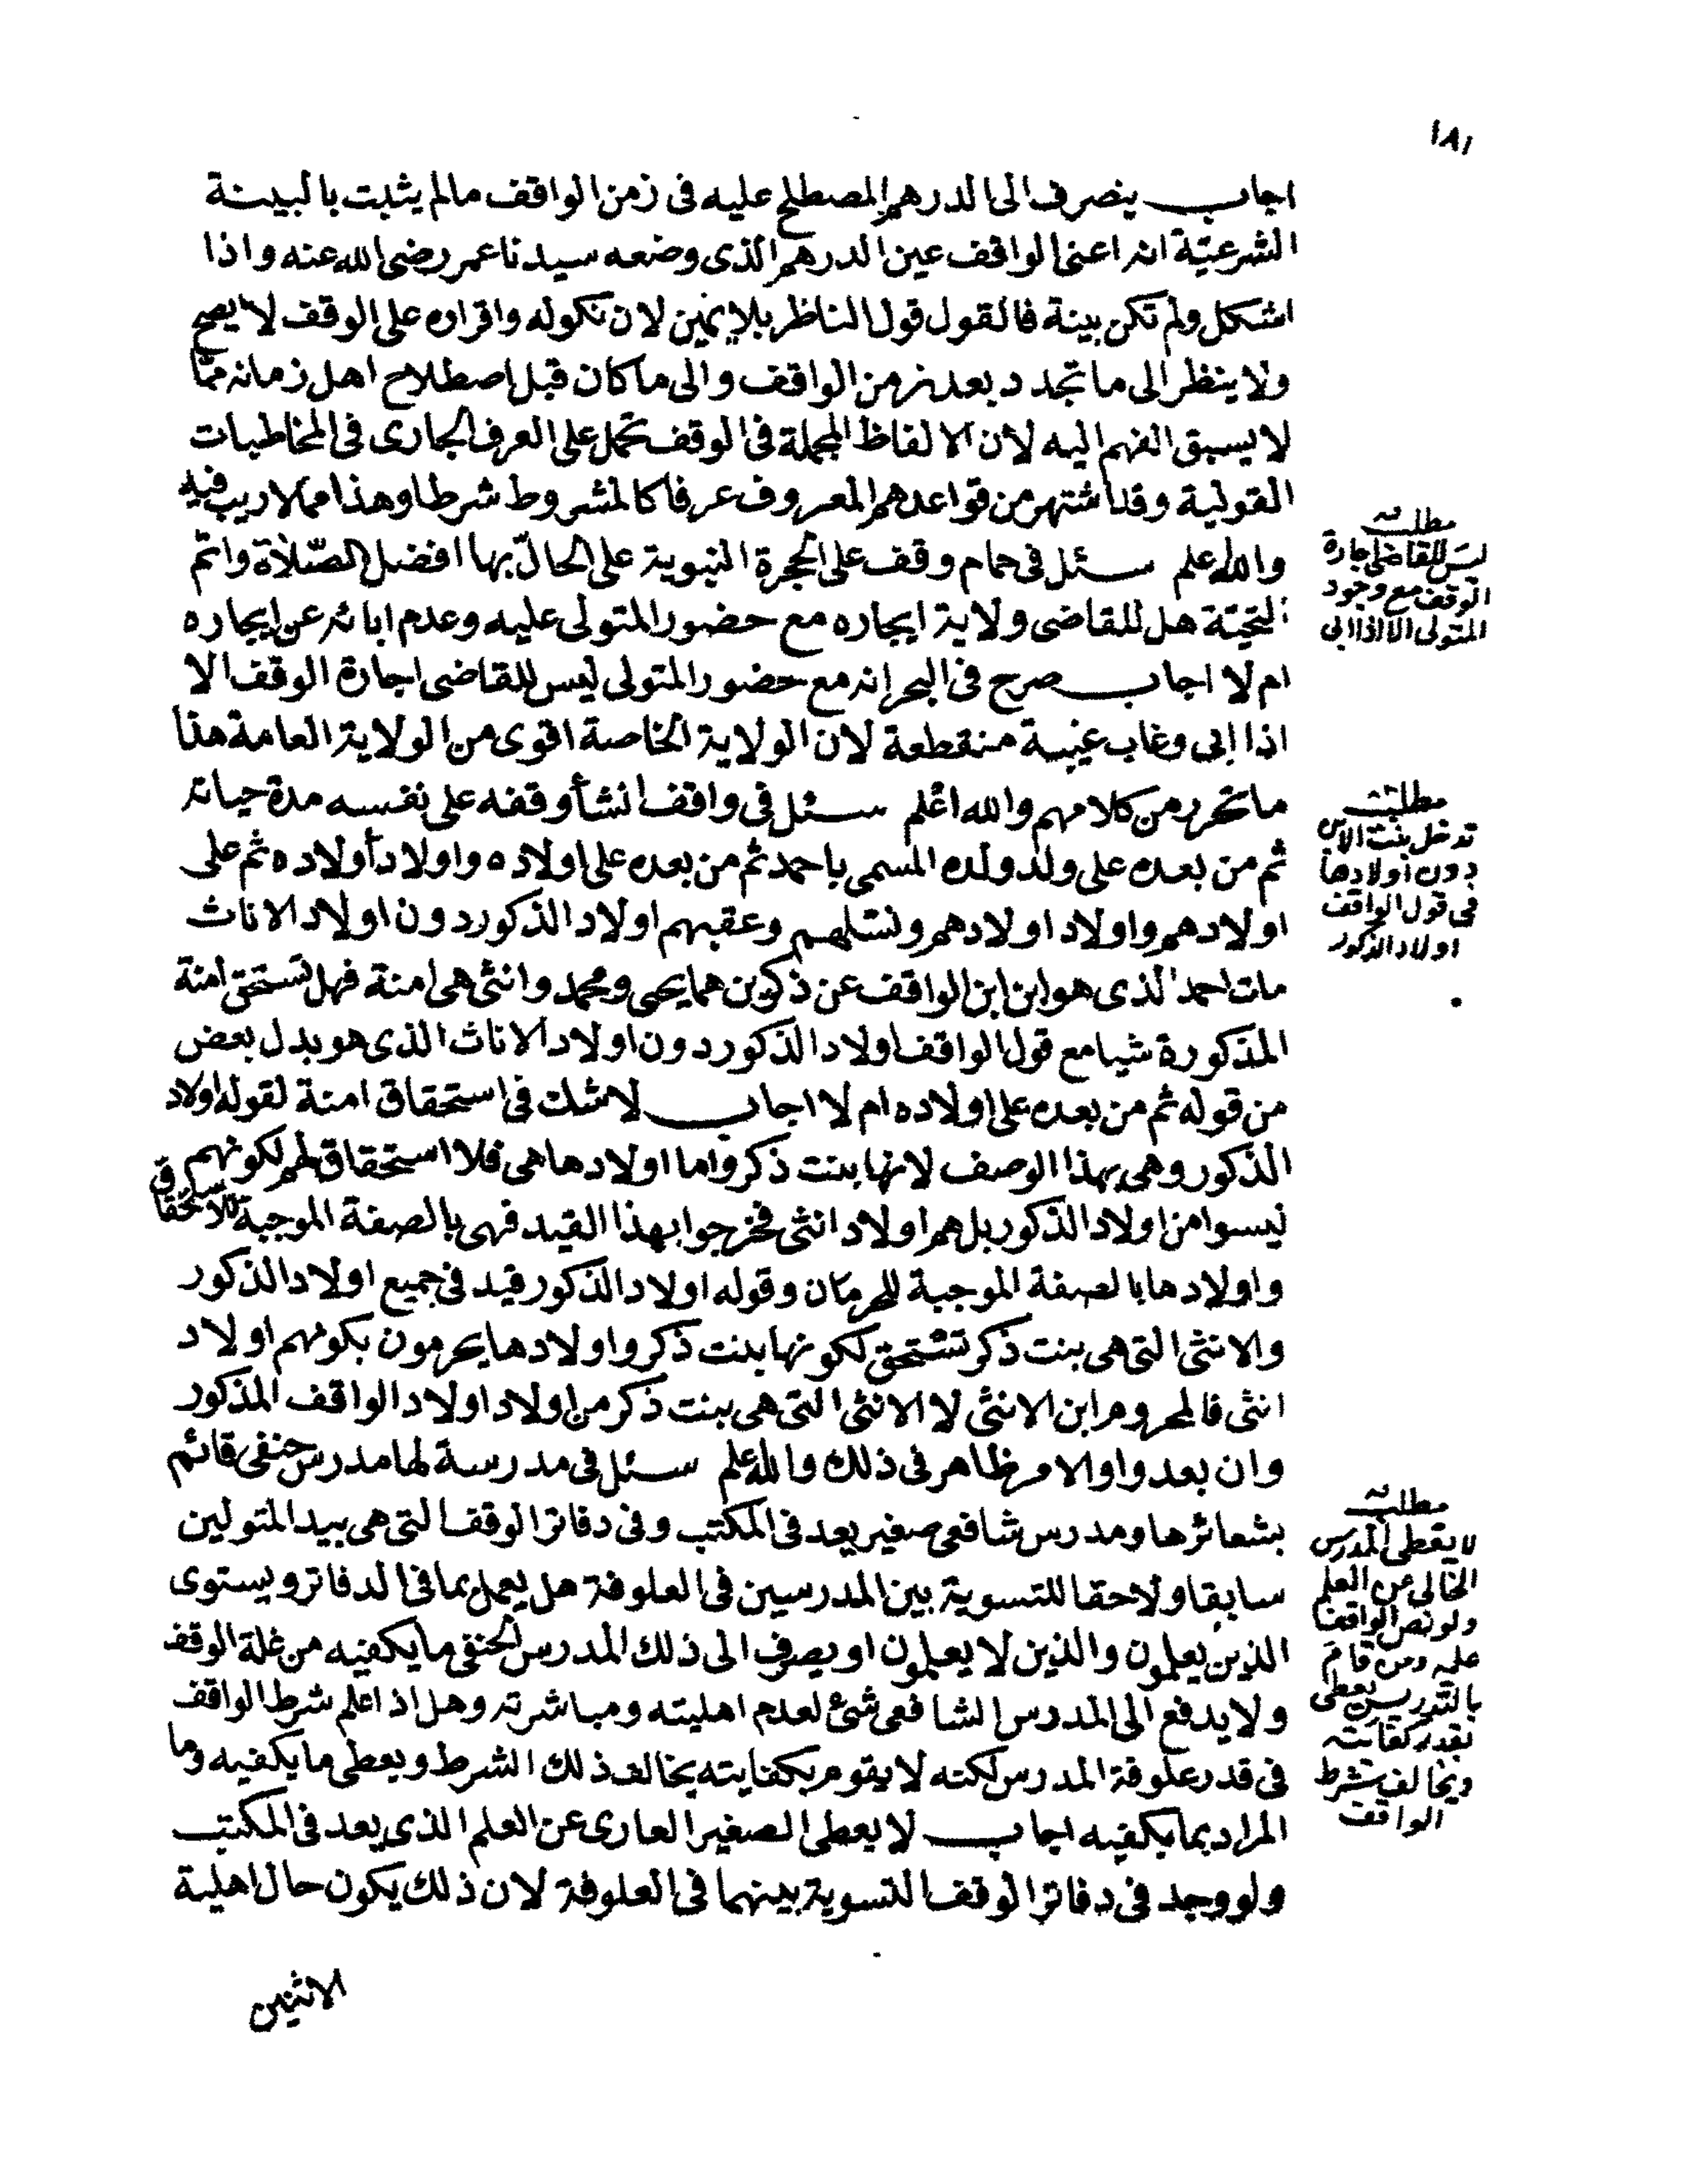 ١٨١
اجاب ينصرف الى الدرهم المصطلح عليه فى زمن الواقف مالم يثبت بالبينة
الشرعيّة انه اعنى الواقف عين الدرهم الذى وضعه سيدنا عمر رضى الله عنه واذا
اشكل ولم تكن بينة فالقول قول الناظر بلا يمين لان نكوله واقراره على الوقف لا يصح
ولا ينظر الى ما تجدد بعد زمن الواقف والى ما كان قبل اصطلاح اهل زمانه ممّا
لا يسبق الفهم اليه لأن الالفاظ المجملة فى الوقف تحمل على العرف الجارى فى المخاطبات
القولية وقد اشتهر من قواعدهم المعروف عرفا كالمشروط شرطا وهذا مما لا ريب فيه
والله اعلم سئل فى حمام وقف على الحجرة النبوية على الحالّ بها افضل الصّلاة واتم
التحيّة هل للقاضى ولاية ايجاره مع حضور المتولى عليه وعدم ابائه عن ايجاره
ام لا اجاب صرح فى البحر انه مع حضور المتولى ليس للقاضى اجارة الوقف الا
اذا ابى وغاب غيبة منقطعة لان الولاية الخاصة اقوى من الولاية العامة هذا
ما تحرر من كلامهم والله اعلم سئل فى واقف انشأ وقفه على نفسه مدة حياته
ثم من بعده على ولد ولده المسمى باحمد ثم من بعده على اولاده واولاد أولاده ثم على
اولادهم واولاد اولادهم ونسلهم وعقبهم اولاد الذكور دون اولاد الاناث
مات احمد الذى هو ابن ابن الواقف عن ذكرين هما يحيى ومحمد وانثى هى امنة فهل تستحق امنة
المذكورة شيا مع قول الواقف اولاد الذكور دون اولاد الاناث الذى هو بدل بعض
من قوله ثم من بعده على اولاده ام لا اجاب لا شك فى استحقاق امنة لقوله اولاد
الذكور وهى بهذا الوصف لانها بنت ذكر واما اولادها هى فلا استحقاق لهم لكونهم
ليسوا من اولاد الذكور بل هم اولاد انثى فخرجوا بهذا القيد فهى بالصفة الموجبة للاستحقاق
واولادها بالصفة الموجبة للحرمان وقوله اولاد الذكور قيد فى جميع اولاد الذكور
والانثى التى هى بنت ذكر تستحق لكونها بنت ذكر واولادها يحرمون بكونهم اولاد
انثى فالمحروم ابن الانثى لا الانثى التى هى بنت ذكر من اولاد اولاد الواقف المذكور
وان بعدوا والامر ظاهر فى ذلك والله اعلم سئل فى مدرسة لها مدرس حنفى قائم
بشعائرها ومدرس شافعى صغير يعد فى المكتب وفى دفاتر الوقف التى هى بيد المتولين
سابقا ولاحقا للتسوية بين المدرسين فى العلوفة هل يعمل بما فى الدفاتر ويستوى
الذين يعلمون والذين لا يعلمون او يصرف الى ذلك المدرس الحنفى ما يكفيه من غلة الوقف
ولا يدفع الى المدرس الشافعى شئ لعدم اهليته ومباشرته وهل اذا علم شرط الواقف
فى قدر علوفة المدرس لكنه لا يقوم بكفايته يخالف ذلك الشرط ويعطى ما يكفيه وما
المراد بما يكفيه اجاب لا يعطى الصغير العارى عن العلم الذى يعد فى المكتب
ولو وجد فى دفاتر الوقف التسوية بينهما فى العلوفة لان ذلك يكون حال اهلية
الاثنين
مطلب
ليس للقاضى اجارة
الوقف مع وجود
المتولى الا اذا ابى
مطلب
تدخل بنت الابن
دون اولادها
فى قول الواقف
اولاد الذكور
مطلب
لا يعطى المدرس
الخالى عن العلم
ولو نص الواقف
عليه ومن قام
بالتدريس يعطى
بقدر كفايته
ويخالف شرط
الواقف